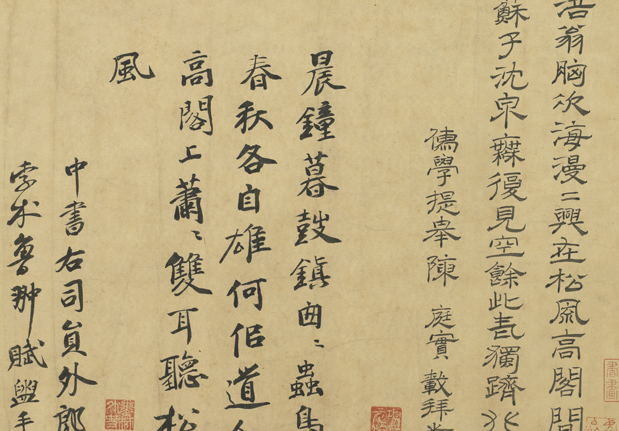 涪翁胸次海漫〻興在松風高閣間
蘇子沈泉無復見空餘此老獨躋
儒學提舉陳庭實載拜
晨鐘暮鼓鎮囪〻蟲鳥
春秋各自雄何侶道人
高閣上蕭〻雙耳聽松
風
中書右司員外郎
孛朮魯翀賦盥手